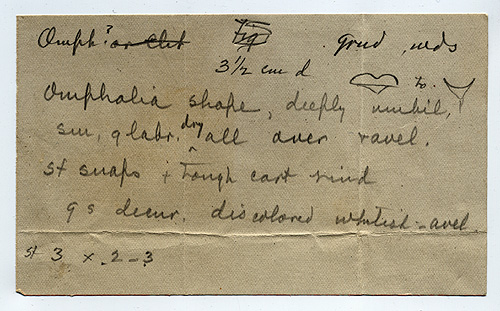 Omph? or Clit Fig Grnd, wds
3½ cm d to
Omphalia shape, deeply umbil,
sm, glabr. dry all over ravel.
st snaps + tough cart rind
gs decur. discolored whitish - avel
st 3 x .2-.3